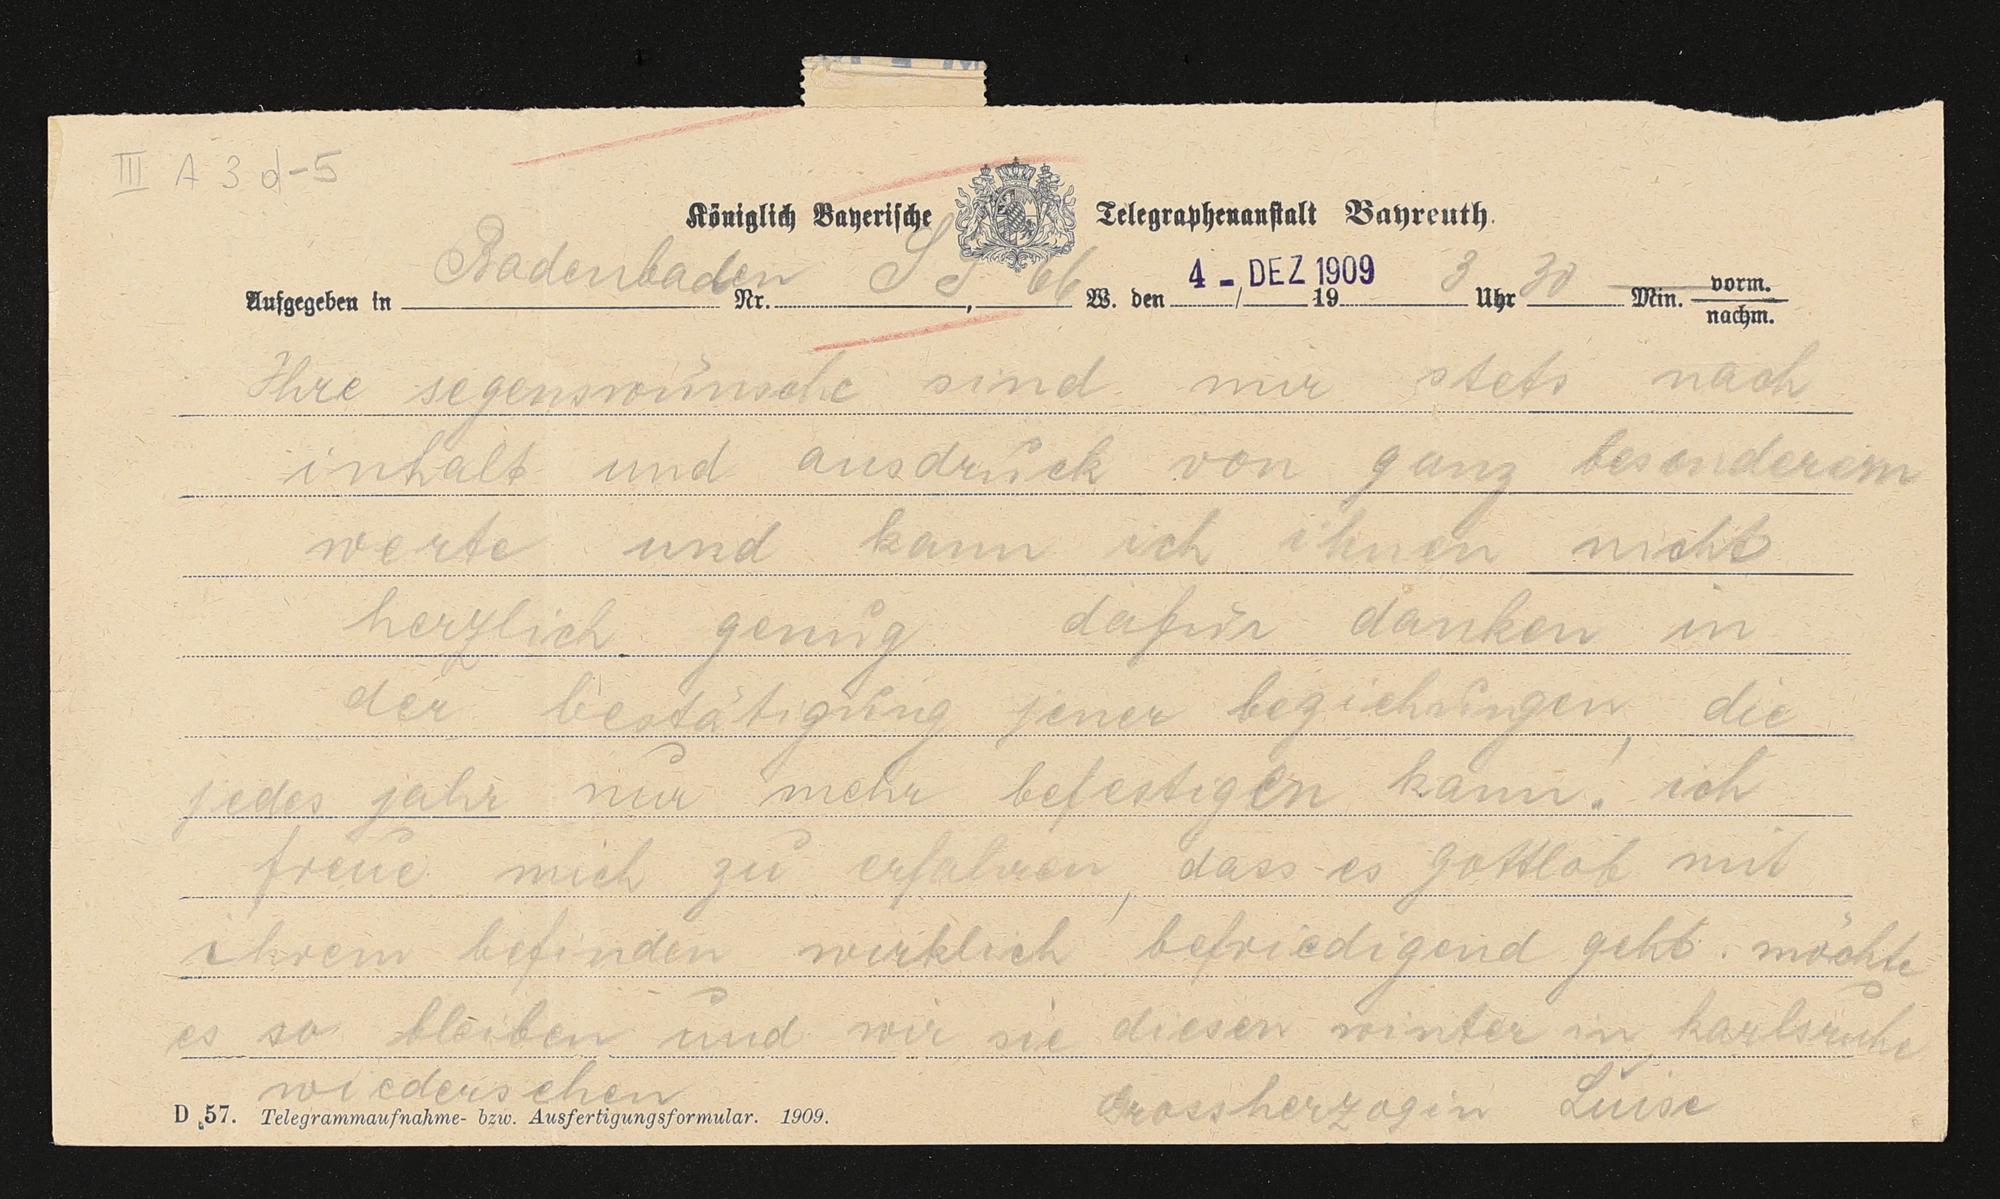 III A 3 d-5
Königlich Bayerische Telegraphenanstalt Bayreuth.
Aufgegeben in Badenbaden Nr. SS, 66 W. den 4 - DEZ 1909 / 19 3 Uhr 30 Min. vorm. nachm.
Ihre segenswünsche sind mir stets nach
inhalt und ausdruck von ganz besonderem
werte und kann ich ihnen nicht
herzlich genug dafür danken in
der bestätigung jener beziehungen, die
jedes jahr nur mehr befestigen kann. ich
freue mich zu erfahren, dass es gottlob mit
ihrem befinden wirklich befriedigend geht. möchte
es so bleiben und wir sie diesen winter in karlsruhe
wiedersehen Grossherzogin Luise
D 57. Telegrammaufnahme- bzw. Ausfertigungsformular. 1909.